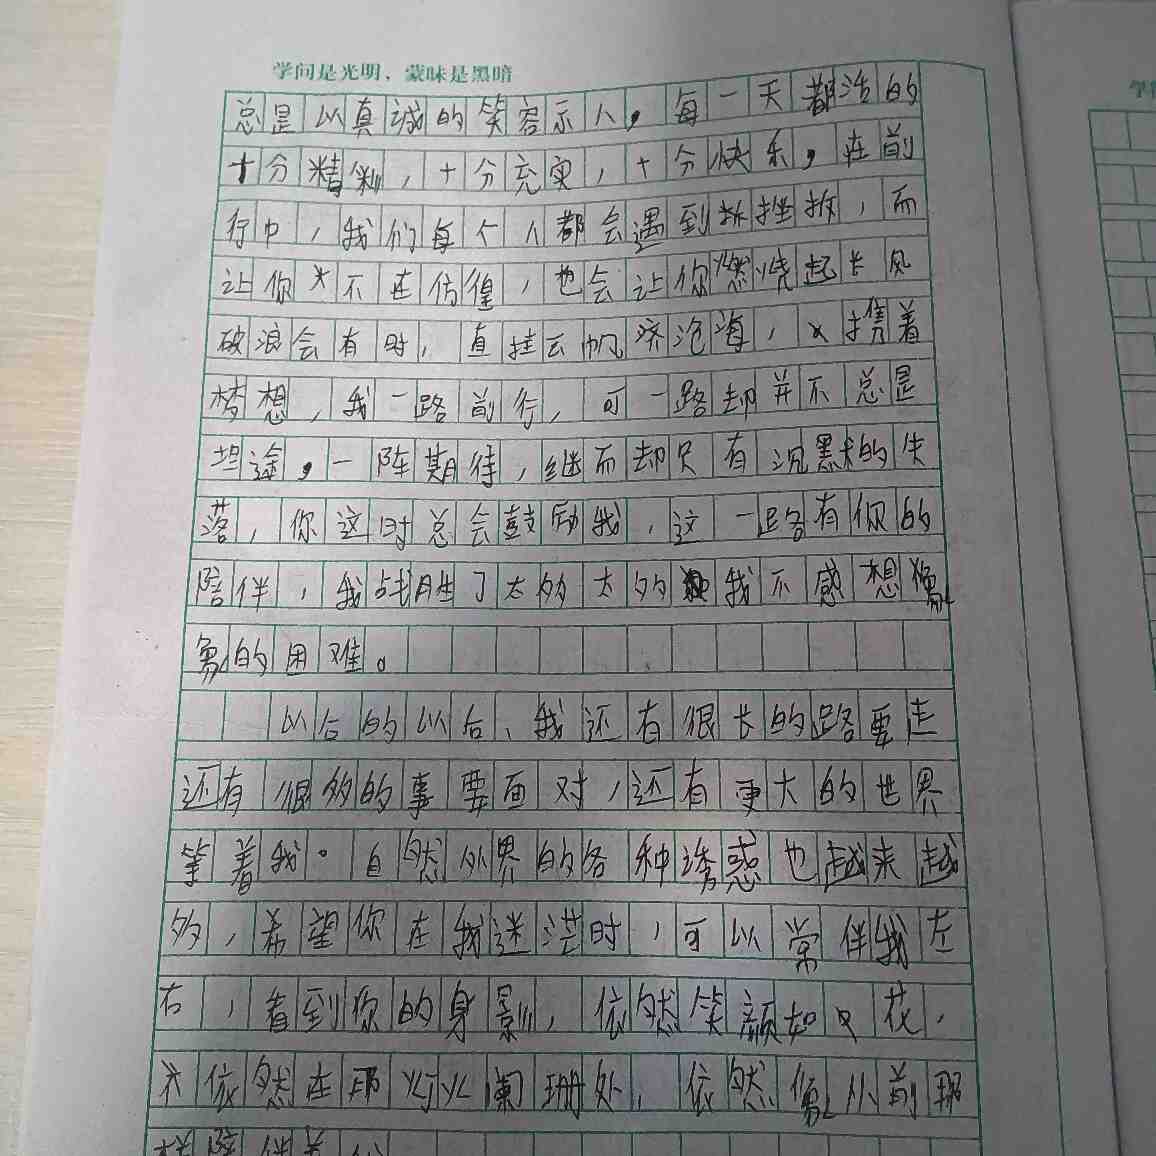 学问是光明，蒙昧是黑暗
总是以真诚的笑容示人，每一天都活的
十分精彩，十分充实，十分快乐，在前
行中，我们每个人都会遇到挫折，而
让你不在彷徨，也会让你燃烧起长风
破浪会有时，直挂云帆济沧海，携着
梦想，我一路前行，可一路却并不总是
坦途，一阵期待，继而却只有沉默的失
落，你这时总会鼓励我，这一路有你的
陪伴，我战胜了太多太多我不敢想
象的困难。
以后的以后，我还有很长的路要走
还有很多的事要面对，还有更大的世界
等着我。自然外界的各种诱惑也越来越
多，希望你在我迷茫时，可以常伴我左
右，看到你的身影，依然笑颜如花，
依然在那灯火阑珊处，依然像从前那
样陪伴着
学